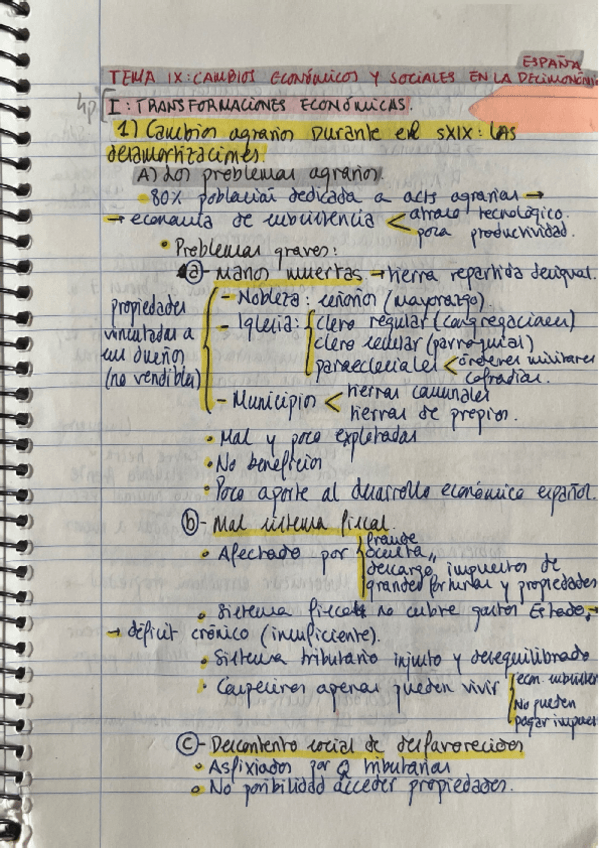 ESPAÑA
TEMA IX: CAMBIOS ECONÓMICOS Y SOCIALES EN LA DECIMONÓNICA
4p [ I: TRANSFORMACIONES ECONÓMICAS.
1) Cambios agrarios Durante en el sXIX: LAS
desamortizaciones.
A) Los problemas agrarios.
• 80% población dedicada a acts agrarias →
→ economía de subsistencia < atraso tecnológico.
poca productividad.
• Problemas graves:
a- Manos muertas → tierra repartida desigual.
propiedades
vinculadas a
sus dueños
(no vendibles)
- Nobleza: señoríos (mayorazgo)
- Iglesia: clero regular (congregaciones)
clero secular (parroquial)
paraeclesiales < órdenes militares
cofradías.
- Municipios < tierras comunales
tierras de propios.
• Mal y poco explotadas
• No beneficios
• Poco aporte al desarrollo económico español.
b- Mal sistema fiscal.
• Afectado por fraude
oculta,,
descargo, impuestos de
grandes fortunas y propiedades
• Sistema fiscal no cubre gastos Estado, →
→ déficit crónico (insuficiente).
• Sistema tributario injusto y desequilibrado
• Campesinos apenas pueden vivir
econ. subsisten
No pueden
pagar impues
c- Descontento social de desfavorecidos
• Asfixiados por tributarias
• No posibilidad acceder propiedades.